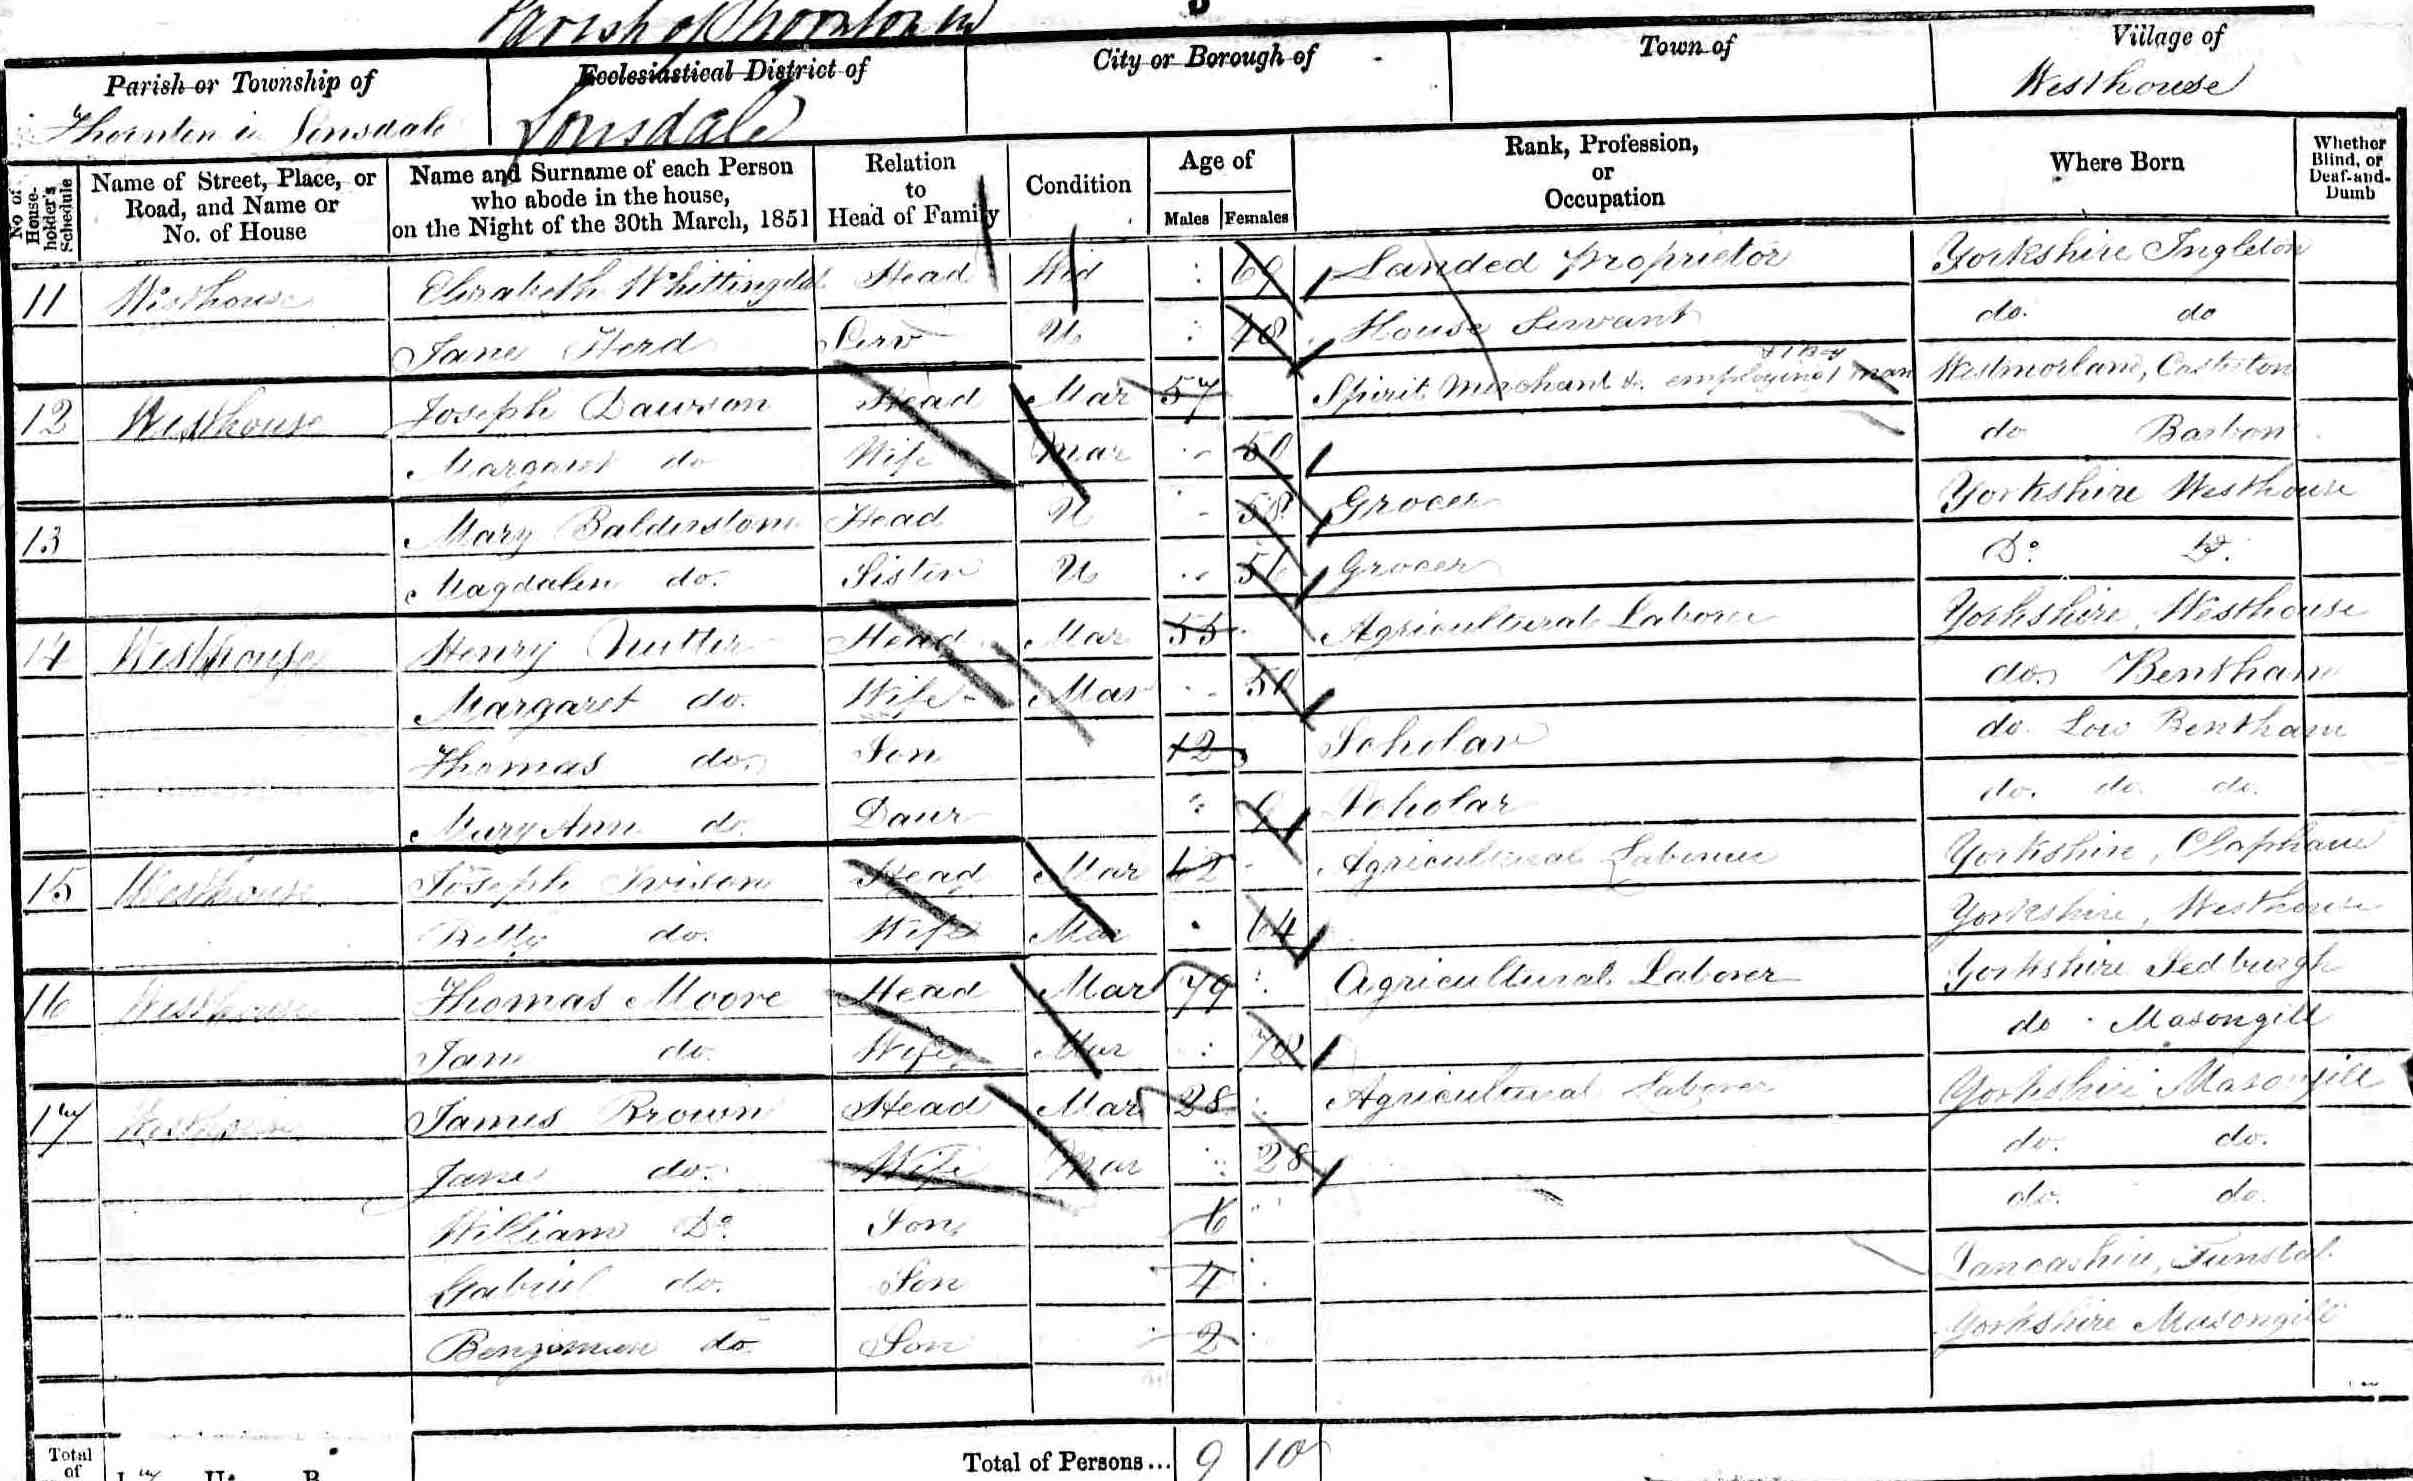 Parish of Thornton in
Parish or Township of
Thornton in Lonsdale
Ecclesiastical District of
Lonsdale
City or Borough of
Town of
Village of
Westhouse
No. of House-holder's Schedule
Name of Street, Place, or Road, and Name or No. of House
Name and Surname of each Person who abode in the house, on the Night of the 30th March, 1851
Relation to Head of Family
Condition
Age of
Males Females
Rank, Profession, or Occupation
Where Born
Whether Blind, or Deaf-and-Dumb
11 Westhouse Elizabeth Whittingdal Head Wid 69 Landed Proprietor Yorkshire Ingleton
Jane Herd Serv U 48 House Servant do. do
12 Westhouse Joseph Dawson Head Mar 57 Spirit Merchant &c. employing 1 man & 1 Boy Westmorland, Casterton
Margaret do Wife Mar 50 do Barbon
13 Mary Balderstone Head U 58 Grocer Yorkshire Westhouse
Magdalen do. Sister U 56 Grocer Do. Do.
14 Westhouse Henry Nutter Head Mar 55 Agricultural Laborer Yorkshire, Westhouse
Margaret do. Wife Mar 50 do. Bentham
Thomas do. Son 12 Scholar do. Low Bentham
Mary Ann do Daur 9 Scholar do. do. do.
15 Westhouse Joseph Ivison Head Mar 62 Agricultural Laborer Yorkshire, Clapham
Betty do. Wife Mar 64 Yorkshire, Westhouse
16 Westhouse Thomas Moore Head Mar 79 Agricultural Laborer Yorkshire Sedburgh
Jane do. Wife Mar 78 do. Masongill
17 Westhouse James Brown Head Mar 28 Agricultural Laborer Yorkshire Masongill
Jane do. Wife Mar 28 do. do.
William Do Son 6 do. do.
Gabriel do. Son 4 Lancashire, Tunstal.
Benjamin do. Son 2 Yorkshire Masongill
Total of
Total of Persons... 9 10